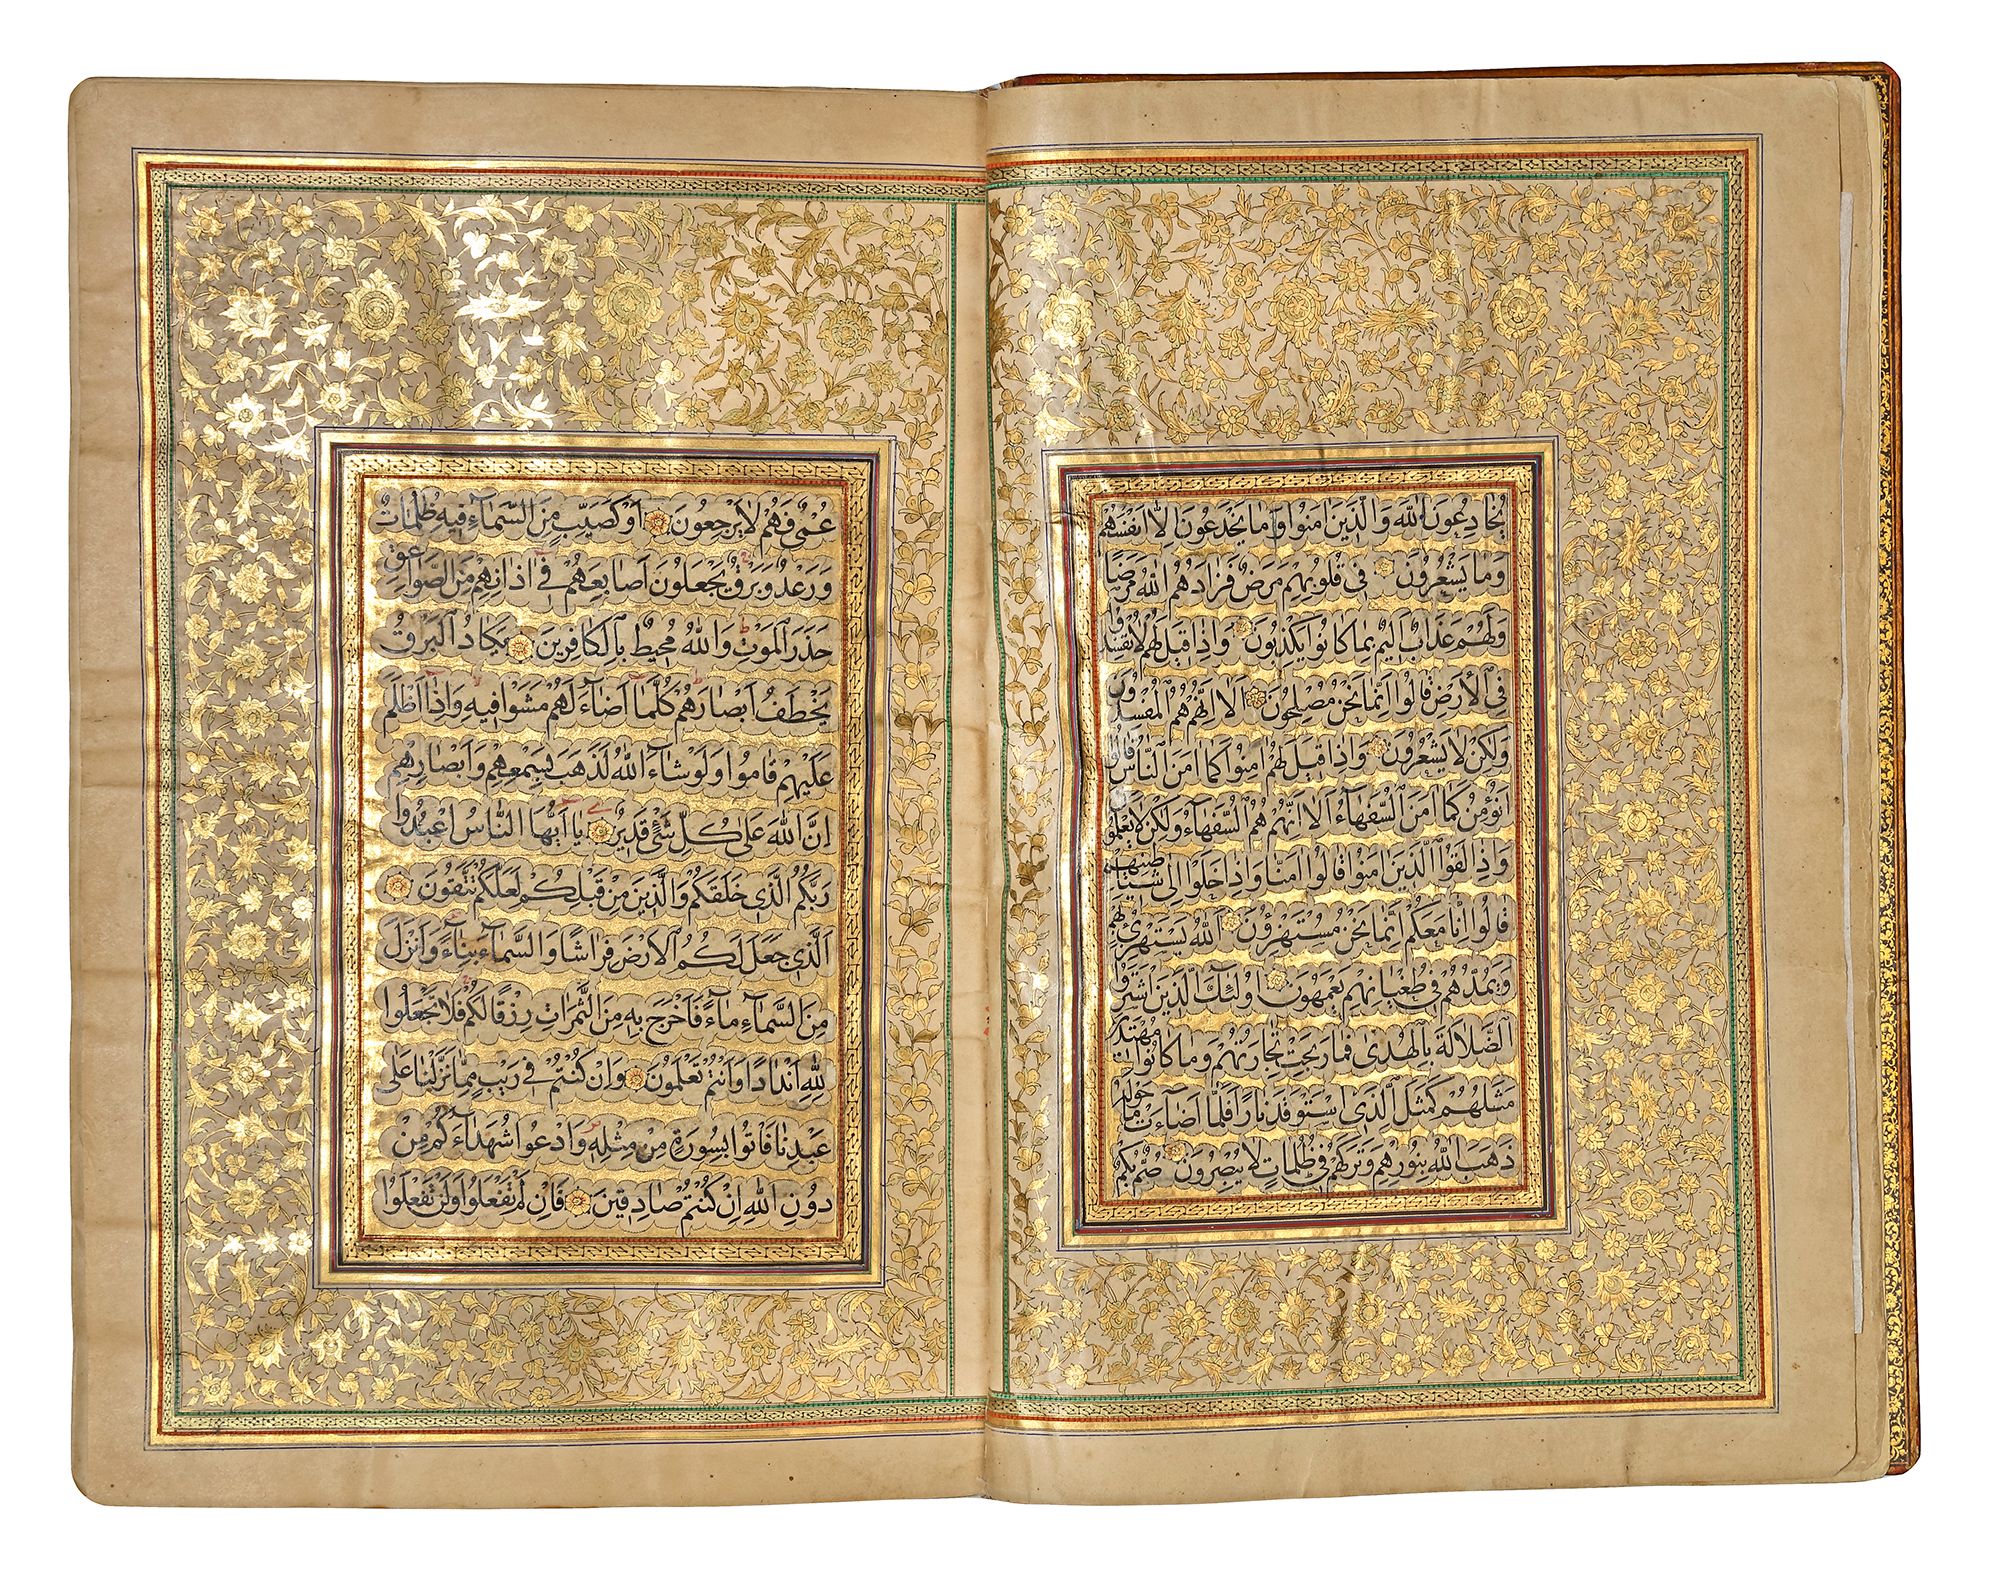 يُخَادِعُونَ اللهَ وَالَّذِينَ اٰمَنُوا وَمَا يَخْدَعُونَ اِلَّا اَنْفُسَهُمْ
وَمَا يَشْعُرُونَ فِي قُلُوبِهِمْ مَرَضٌ فَزَادَهُمُ اللهُ مَرَضًا
وَلَهُمْ عَذَابٌ اَلِيمٌ بِمَا كَانُوا يَكْذِبُونَ وَاِذَا قِيلَ لَهُمْ لَا تُفْسِدُوا
فِي الْاَرْضِ قَالُوا اِنَّمَا نَحْنُ مُصْلِحُونَ اَلَا اِنَّهُمْ هُمُ الْمُفْسِدُونَ
وَلٰكِنْ لَا يَشْعُرُونَ وَاِذَا قِيلَ لَهُمْ اٰمِنُوا كَمَا اٰمَنَ النَّاسُ قَالُوا
اَنُؤْمِنُ كَمَا اٰمَنَ السُّفَهَآءُ اَلَا اِنَّهُمْ هُمُ السُّفَهَآءُ وَلٰكِنْ لَا يَعْلَمُونَ
وَاِذَا لَقُوا الَّذِينَ اٰمَنُوا قَالُوا اٰمَنَّا وَاِذَا خَلَوْا اِلٰى شَيَاطِينِهِمْ
قَالُوا اِنَّا مَعَكُمْ اِنَّمَا نَحْنُ مُسْتَهْزِؤُنَ اَللهُ يَسْتَهْزِئُ بِهِمْ
وَيَمُدُّهُمْ فِي طُغْيَانِهِمْ يَعْمَهُونَ اُولٰئِكَ الَّذِينَ اشْتَرَوُا
الضَّلَالَةَ بِالْهُدٰى فَمَا رَبِحَتْ تِجَارَتُهُمْ وَمَا كَانُوا مُهْتَدِينَ
مَثَلُهُمْ كَمَثَلِ الَّذِي اسْتَوْقَدَ نَارًا فَلَمَّا اَضَآءَتْ مَا حَوْلَهُ
ذَهَبَ اللهُ بِنُورِهِمْ وَتَرَكَهُمْ فِي ظُلُمَاتٍ لَا يُبْصِرُونَ صُمٌّ بُكْمٌ
عُمْيٌ فَهُمْ لَا يَرْجِعُونَ اَوْ كَصَيِّبٍ مِنَ السَّمَآءِ فِيهِ ظُلُمَاتٌ
وَرَعْدٌ وَبَرْقٌ يَجْعَلُونَ اَصَابِعَهُمْ فِي اٰذَانِهِمْ مِنَ الصَّوَاعِقِ
حَذَرَ الْمَوْتِ وَاللهُ مُحِيطٌ بِالْكَافِرِينَ يَكَادُ الْبَرْقُ
يَخْطَفُ اَبْصَارَهُمْ كُلَّمَا اَضَآءَ لَهُمْ مَشَوْا فِيهِ وَاِذَا اَظْلَمَ
عَلَيْهِمْ قَامُوا وَلَوْ شَآءَ اللهُ لَذَهَبَ بِسَمْعِهِمْ وَاَبْصَارِهِمْ
اِنَّ اللهَ عَلٰى كُلِّ شَيْءٍ قَدِيرٌ يَا اَيُّهَا النَّاسُ اعْبُدُوا
رَبَّكُمُ الَّذِي خَلَقَكُمْ وَالَّذِينَ مِنْ قَبْلِكُمْ لَعَلَّكُمْ تَتَّقُونَ
اَلَّذِي جَعَلَ لَكُمُ الْاَرْضَ فِرَاشًا وَالسَّمَآءَ بِنَآءً وَاَنْزَلَ
مِنَ السَّمَآءِ مَآءً فَاَخْرَجَ بِهِ مِنَ الثَّمَرَاتِ رِزْقًا لَكُمْ فَلَا تَجْعَلُوا
لِلّٰهِ اَنْدَادًا وَاَنْتُمْ تَعْلَمُونَ وَاِنْ كُنْتُمْ فِي رَيْبٍ مِمَّا نَزَّلْنَا عَلٰى
عَبْدِنَا فَاْتُوا بِسُورَةٍ مِنْ مِثْلِهِ وَادْعُوا شُهَدَآءَكُمْ مِنْ
دُونِ اللهِ اِنْ كُنْتُمْ صَادِقِينَ فَاِنْ لَمْ تَفْعَلُوا وَلَنْ تَفْعَلُوا